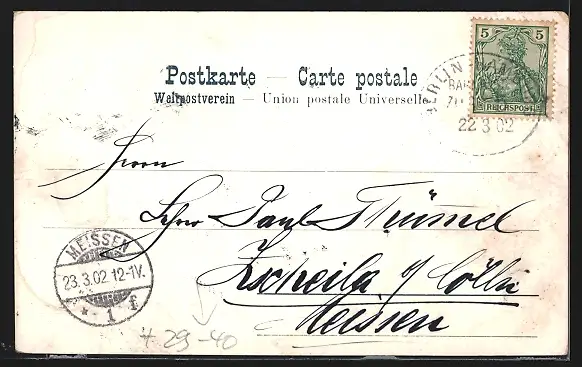 Postkarte — Carte postale
Weltpostverein — Union postale Universelle
5 5
REICHSPOST
BERLIN
22 3 02
Herrn
Paul Thümmel
Zscheila b/ Cölln
Meissen
MEISSEN
23.3.02.12-1V.
* 1 f
29-40